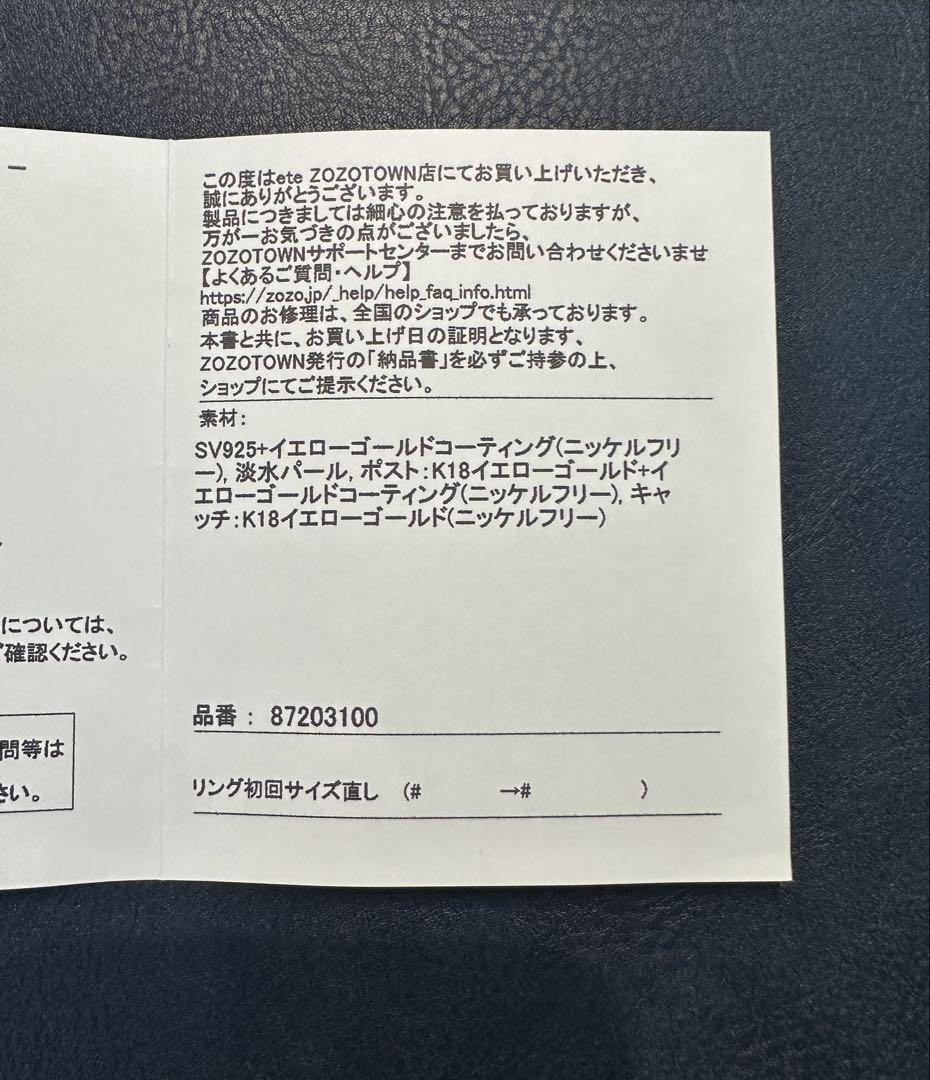 この度はete ZOZOTOWN店にてお買い上げいただき、
誠にありがとうございます。
製品につきましては細心の注意を払っておりますが、
万が一お気づきの点がございましたら、
ZOZOTOWNサポートセンターまでお問い合わせくださいませ
【よくあるご質問・ヘルプ】
https://zozo.jp/_help/help_faq_info.html
商品のお修理は、全国のショップでも承っております。
本書と共に、お買い上げ日の証明となります、
ZOZOTOWN発行の「納品書」を必ずご持参の上、
ショップにてご提示ください。
素材：
SV925+イエローゴールドコーティング(ニッケルフリ
ー), 淡水パール, ポスト：K18イエローゴールド+イ
エローゴールドコーティング(ニッケルフリー), キャ
ッチ：K18イエローゴールド(ニッケルフリー)
については、
ご確認ください。
品番： 87203100
問等は
さい。
リング初回サイズ直し （# →# ）